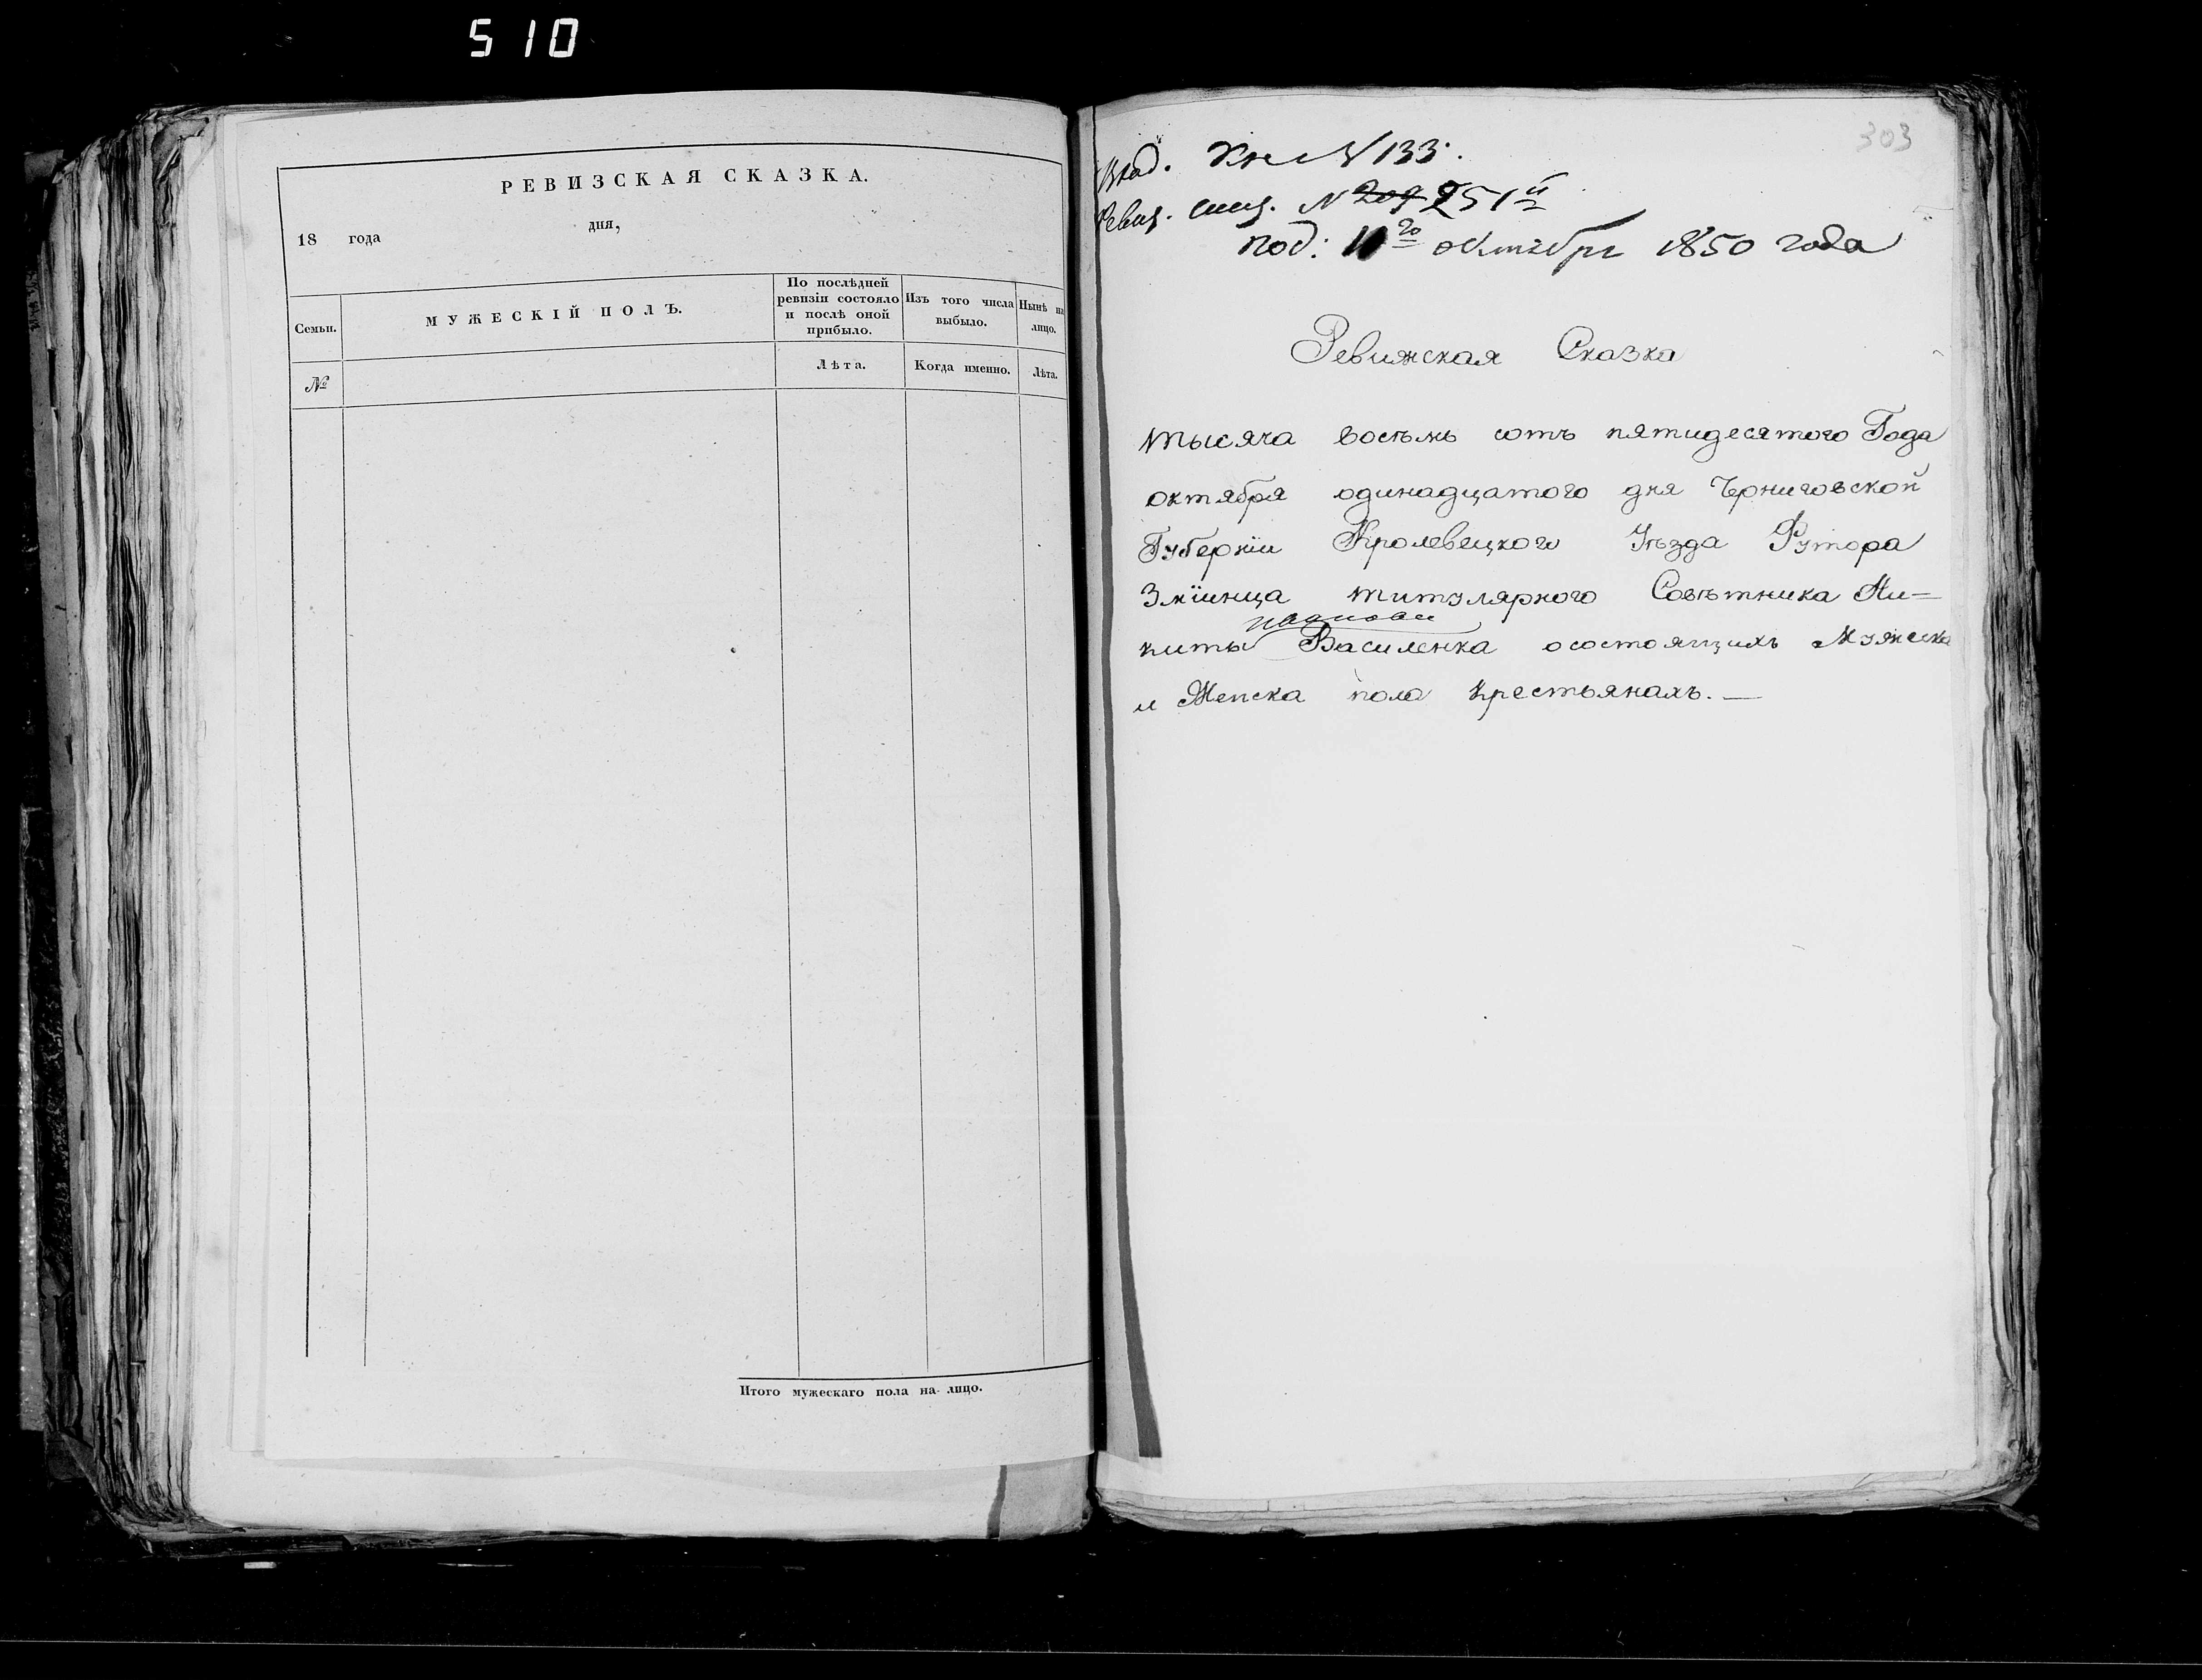 510
РЕВИЗСКАЯ СКАЗКА.
18 года дня,
Семьи.
МУЖЕСКІЙ ПОЛЪ.
По послѣдней ревизіи состояло и послѣ оной прибыло.
Изъ того числа выбыло.
Нынѣ на лицо.
№
Лѣта.
Когда именно.
Лѣта.
Итого мужескаго пола на-лицо.
303
Вход. Кн N 133.
Ревиз. N 209 251й
под: 11го октября 1850 года
Ревижская Сказка
тысяча восѣмь сотъ пятидесятого Года
октября одинадцатого дня Черниговской
Губерніи Кролевецкого Уѣзда Футора
Зміинца титулярного Совѣтника Ни=
киты Василенка осостоящихъ Мужеска
и Женска пола Крестьянахъ. —